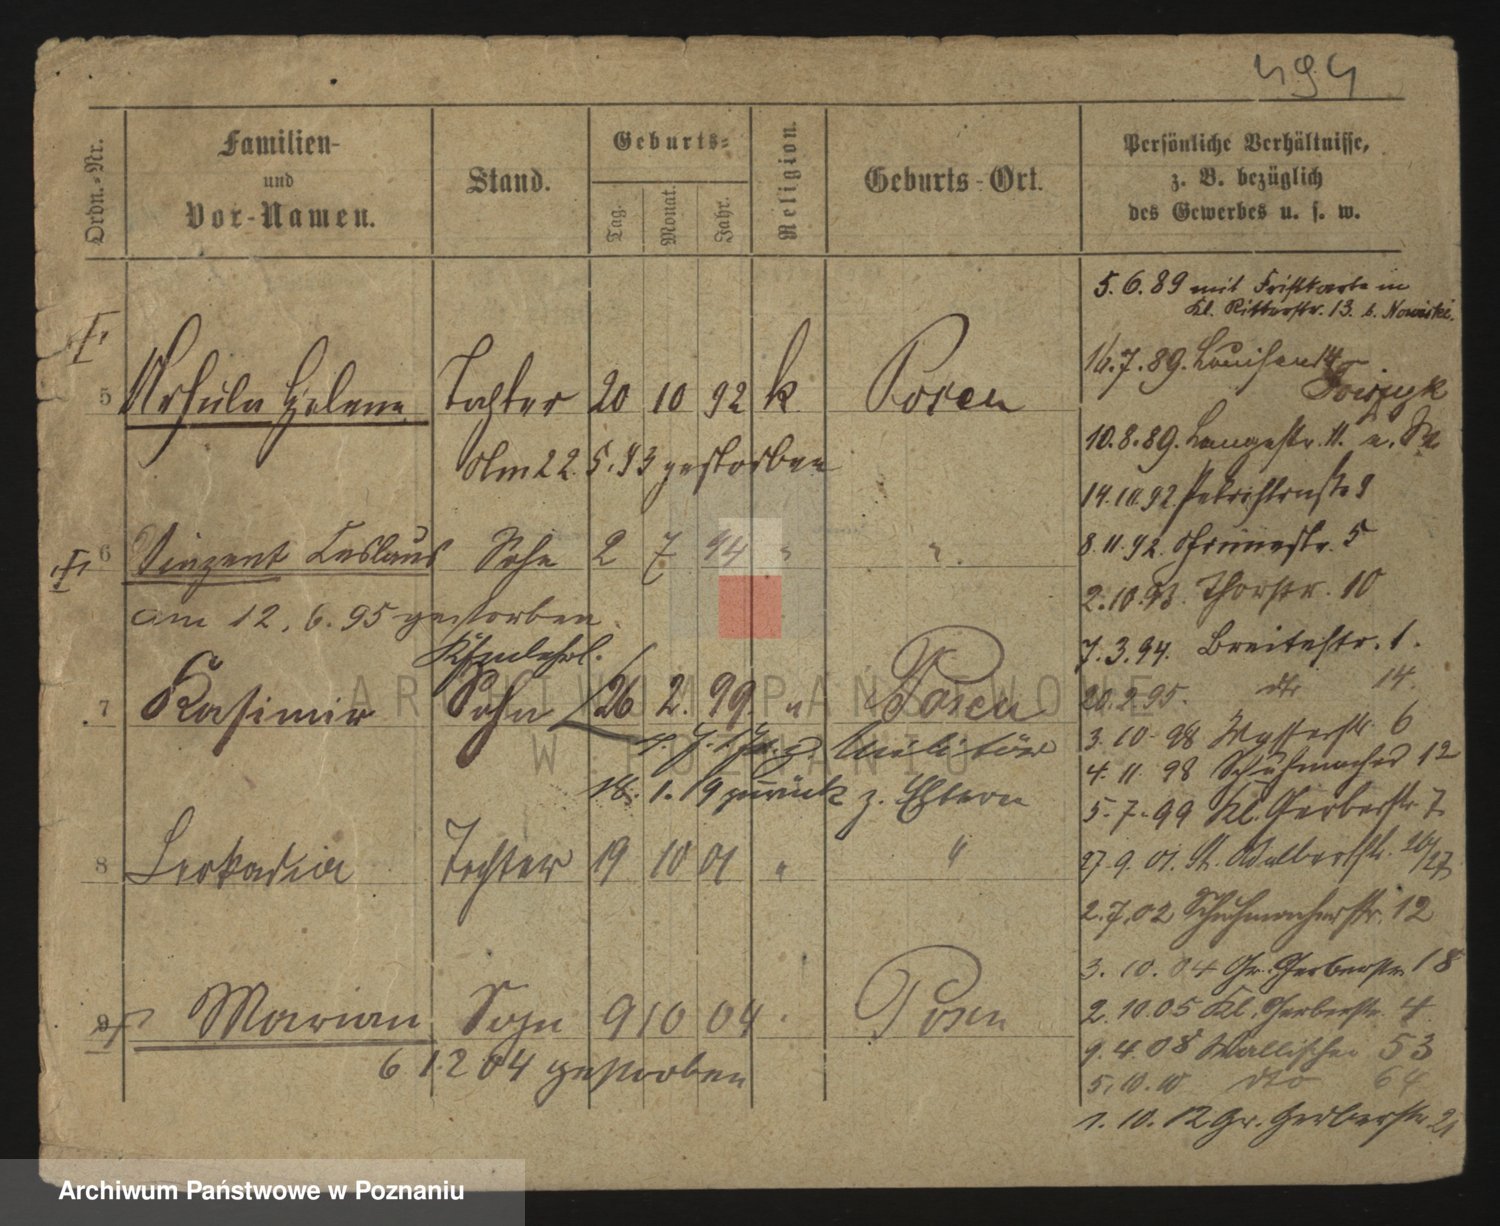 494
Ordn.-Nr.
Familien-
und
Vor-Namen.
Stand.
Geburts-
Tag.
Monat.
Jahr.
Religion.
Geburts-Ort.
Persönliche Verhältnisse,
z. B. bezüglich
des Gewerbes u. s. w.
5.6.89 mit
Kl. Ritterstr. 13. b. Nowicki.
5 Ursula Helene Tochter 20 10 92 k. Posen
Am 22.5.93 gestorben
16.7.89. Louisenstr
10.8.89. Langestr. 11.
14.10.92. Petristrasse 9
6 Vinzent Ceslaus Sohn 2 7 94 " "
am 12.6.95 gestorben.
8.11.92. 5
2.10.93. Thorstr. 10
7.3.94. Breitestr. 1.
20.2.95. dto 14.
7 Kasimir Sohn 26 2. 99. " Posen
z. Militär
18.1.19 zurück z. Eltern
3.10.98 Wasserstr. 6
4.11.98 Schuhmacher 12
5.7.99 Kl. Gerberstr. 7
8 Leokadia Tochter 19 10 01 " "
27.9.01. St. Adalbertstr. 26/27
2.7.02 Schuhmacherstr. 12
3.10.04 Gr. Gerberstr. 18
9 Marian Sohn 9 10 04 " Posen
6 12 04 gestorben
2.10.05 Kl. Gerberstr. 4.
9.4.08 Wallischei 53
5.10.10 dto 64
1.10.12 Gr. Gerberstr. 21
ARCHIWUM PAŃSTWOWE
W POZNANIU
Archiwum Państwowe w Poznaniu